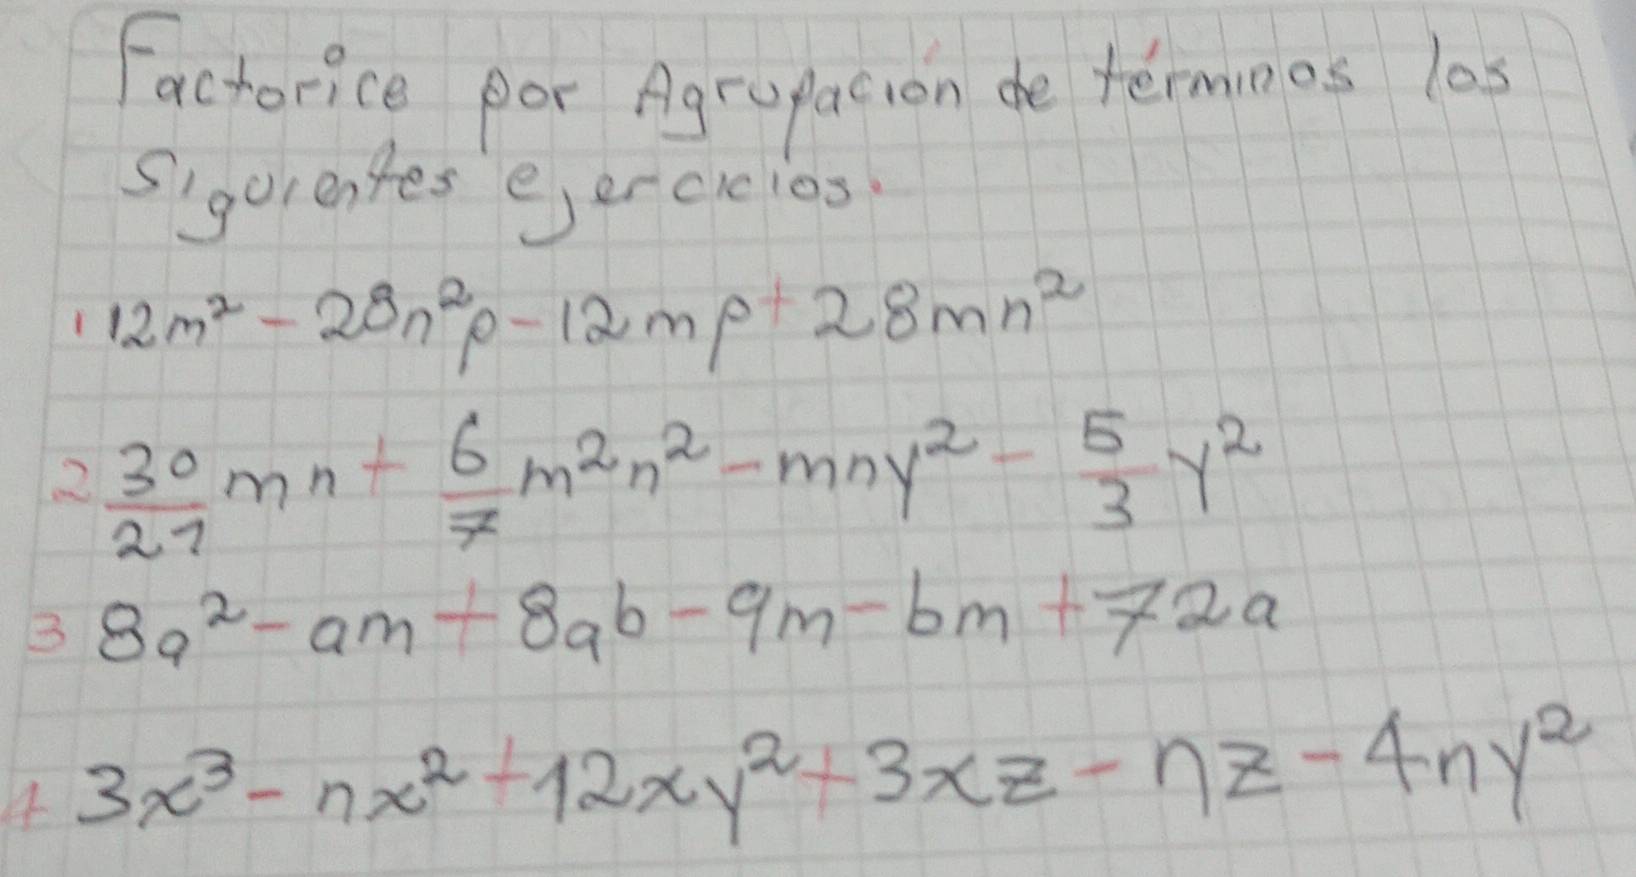 Factorice por Agrupación de términos los
Siguientes ejercicios.
1 12m² - 28n²p - 12mp + 28mn²
2 30/21 mn + 6/7 m²n² - mny² - 5/3 y²
3 8a² - am + 8ab - 9m - bm + 72a
4 3x³ - nx² + 12xy² + 3xz - nz - 4ny²